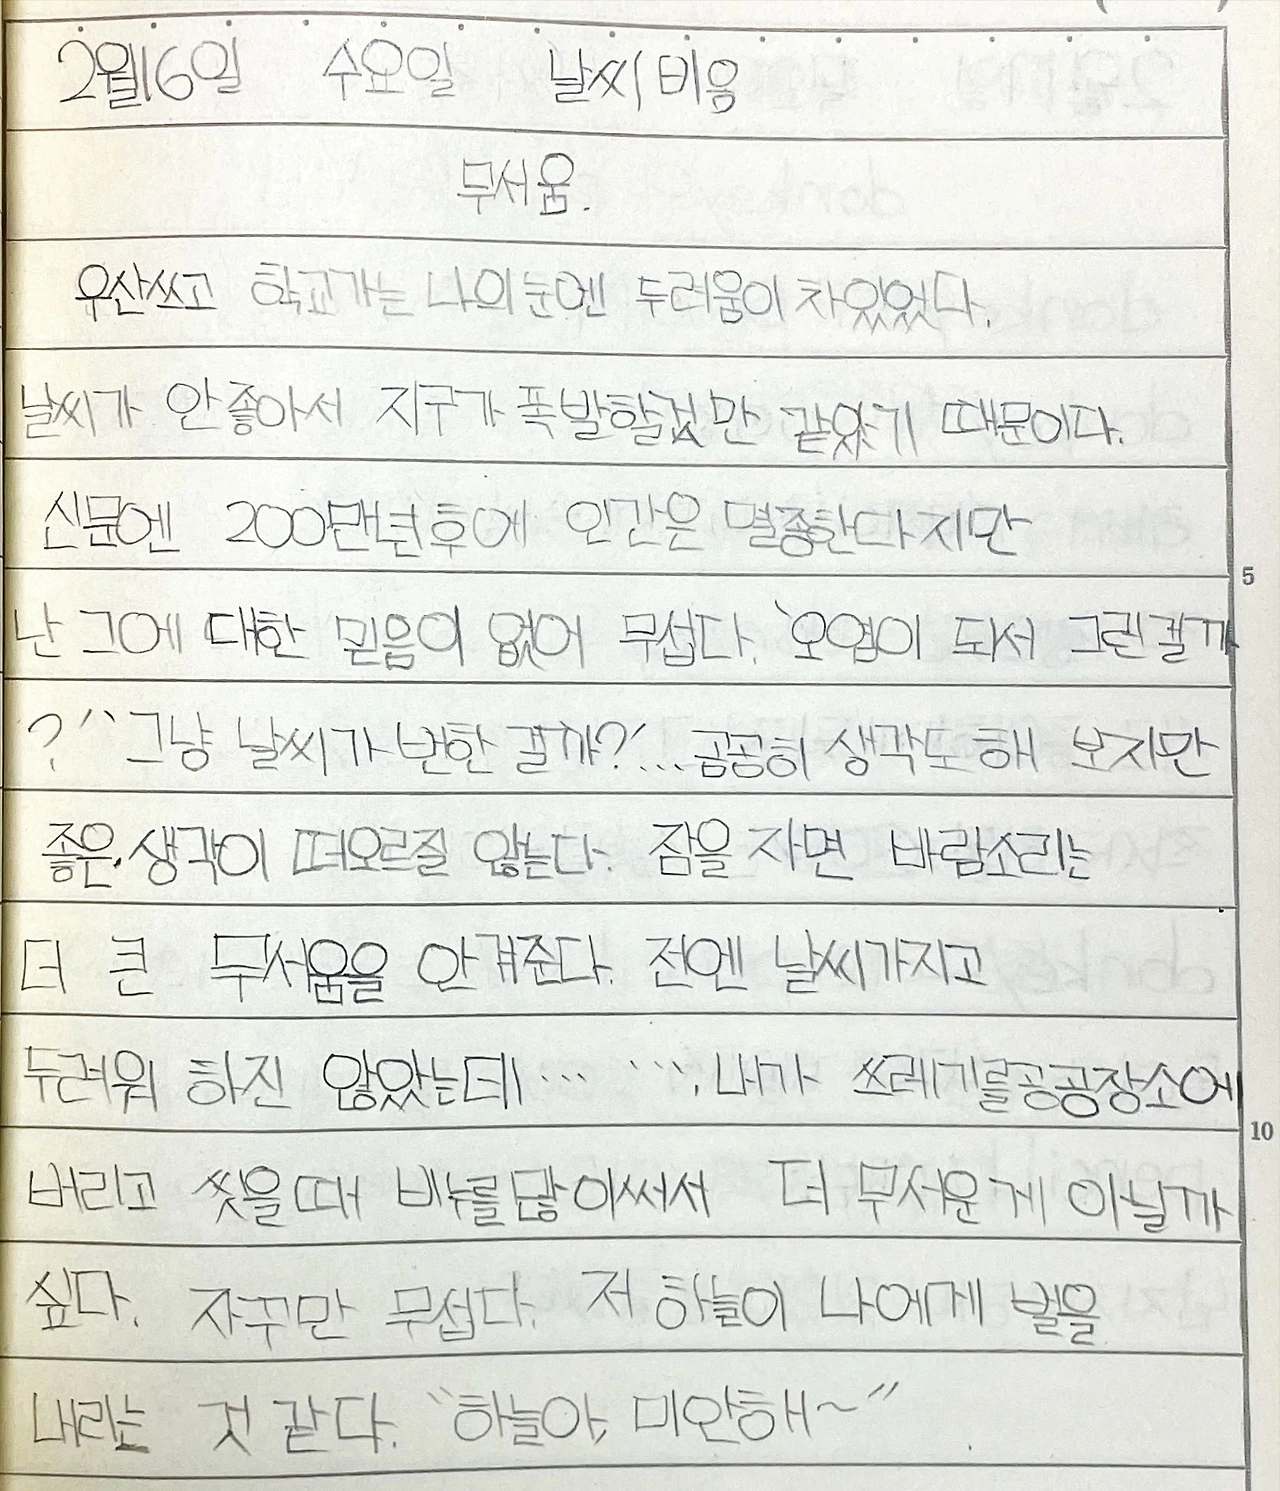 2월16일 수요일 날씨 비응
무서움.
우산쓰고 학교가는 나의 눈엔 두려움이 차있었다.
날씨가 안좋아서 지구가 폭발할겄만 같았기 때문이다.
신문엔 200만년후에 인간은 멸종한다지만
난 그에 대한 믿음이 없어 무섭다. '오염이 되서 그런걸까
?' '그냥 날씨가 변한 걸까?'... 곰곰히 생각도해 보지만
좋은 생각이 떠오르질 않는다. 잠을 자면 바람소리는
더 큰 무서움을 안겨준다. 전엔 날씨가지고
두려워 하진 않았는데… …. 내가 쓰레기를공공장소에
버리고 씻을때 비누를많이써서 더 무서운게 아닐까
싶다. 자꾸만 무섭다. 저 하늘이 나에게 벌을
내리는 것 같다. "하늘아, 미안해~"
5
10